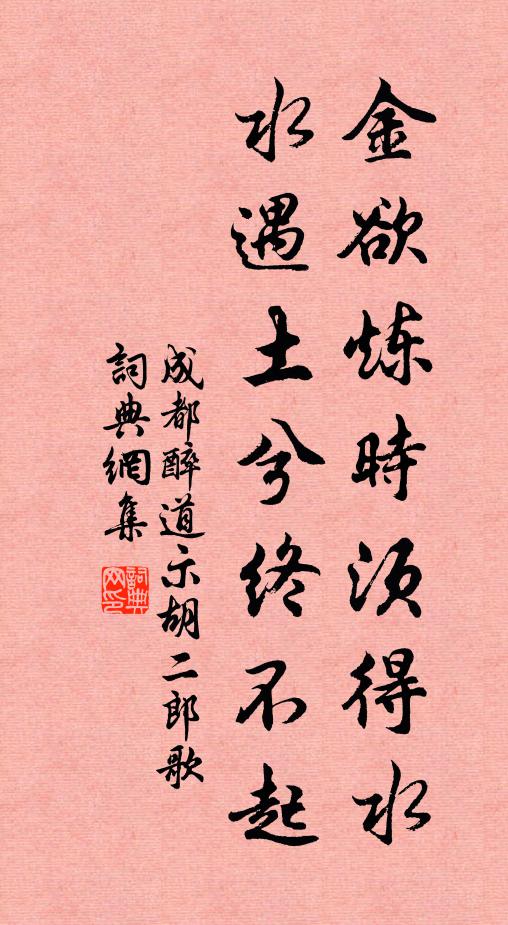 金欲炼時须得水
水遇土兮终不起
成都醉道示胡二郎歌
詞典網集
詞典网印